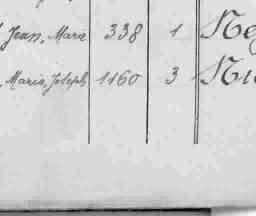 Jean, Marie 338 1 Ne
Marie, Joseph 1160 3 Ni